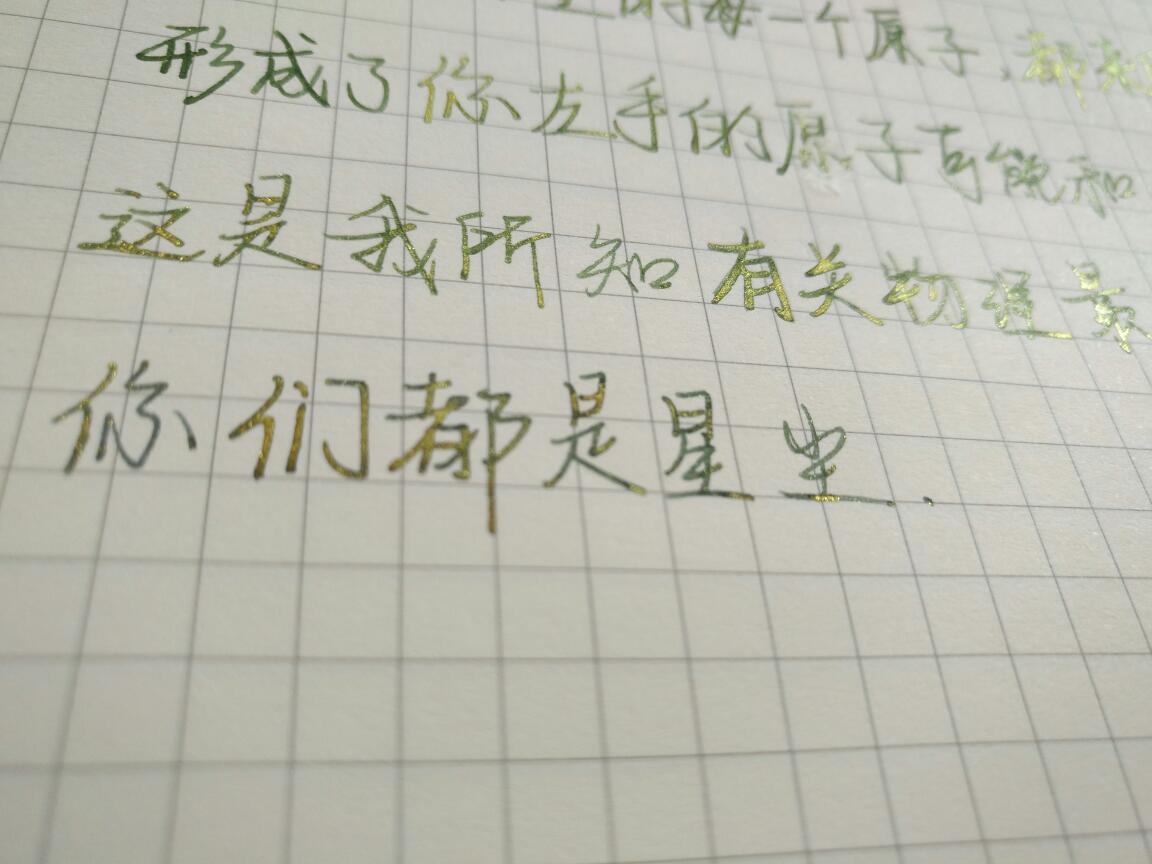 的每一个原子,都
形成了你左手的原子可能和
这是我所知有关物理最
你们都是星尘.